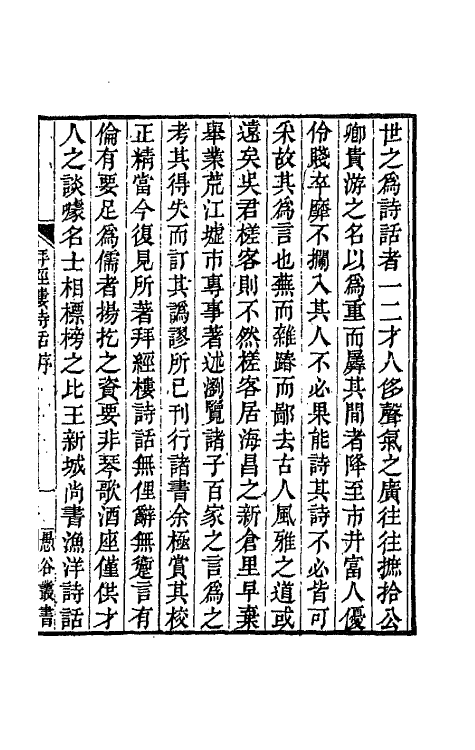 世之為詩話者一二才人侈聲氣之廣往往摭拾公
卿貴游之名以為重而羼其間者降至市井富人優
伶賤卒靡不攔入其人不必果能詩其詩不必皆可
采故其為言也蕪而雜蹐而鄙去古人風雅之道或
遠矣吳君槎客則不然槎客居海昌之新倉里早棄
舉業荒江墟市專事著述瀏覽諸子百家之言為之
考其得失而訂其譌謬所已刊行諸書余極賞其校
正精當今復見所著拜經樓詩話無俚辭無躗言有
倫有要足為儒者揚扢之資要非琴歌酒座僅供才
人之談噱名士相標榜之比王新城尚書漁洋詩話
拜經樓詩話序
愚谷叢書